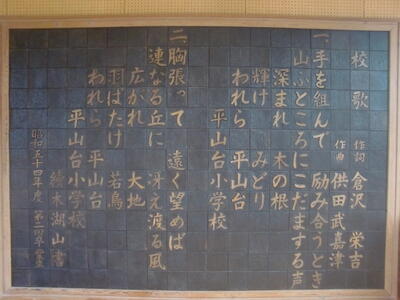 校歌
作詞 倉沢栄吉
作曲 供田武嘉津
一、手を組んで 励み合うとき
山ふところにこだまする声
深まれ 木の根
輝け みどり
われら 平山台
平山台小学校
二、胸張って 遠く望めば
連なる丘に 冴え渡る風
広がれ 大地
羽ばたけ 若鳥
われら 平山台
平山台小学校
湖山書
昭和五十四年度 第二回卒業